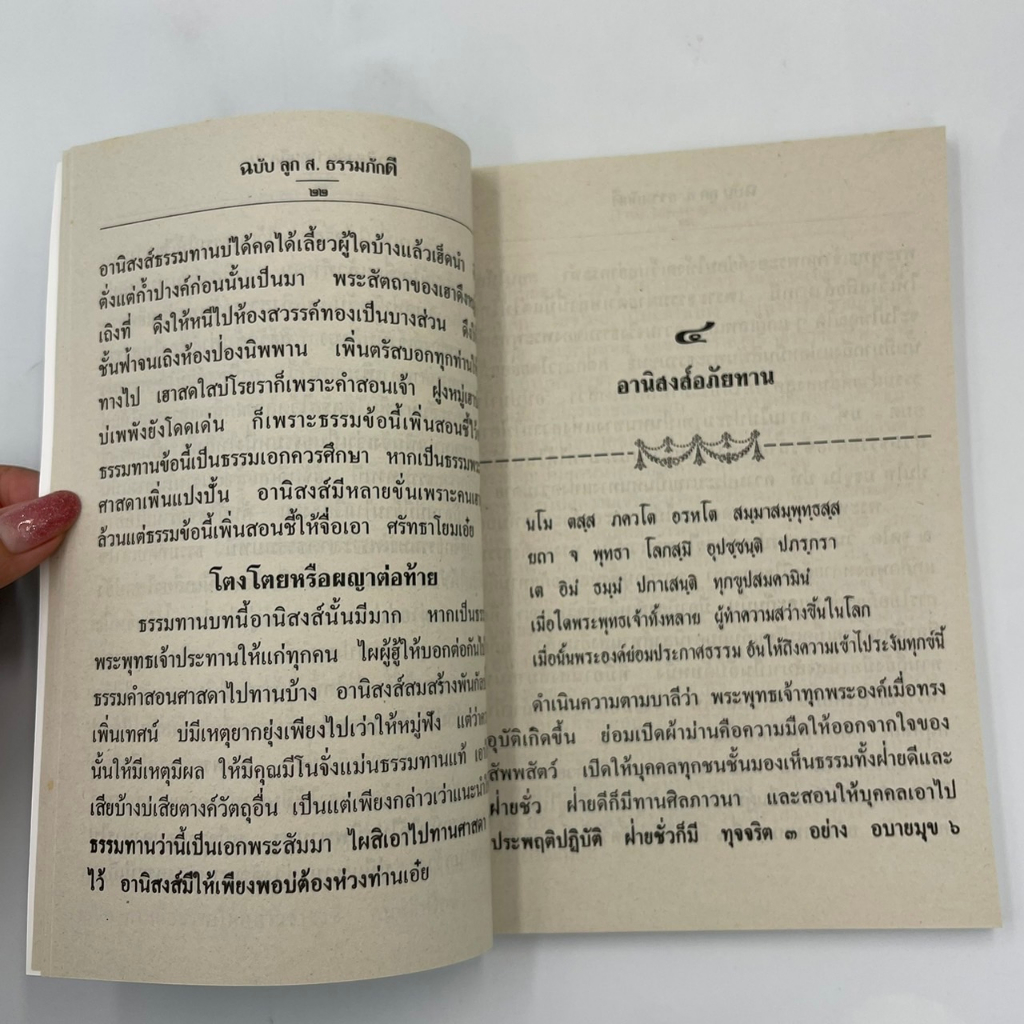 ฉบับ ลูก ส. ธรรมภักดี
๒๒
อานิสงส์ธรรมทานบ่ได้คดได้เลี้ยวผู้ใดบ้างแล้วเฮ็ดนำ
ตั่งแต่ก้ำปางค์ก่อนนั้นเป็นมา พระสัตถาของเฮาดึง
เถิงที่ ดึงให้หนีไปห้องสวรรค์ทองเป็นบางส่วน
ชั้นฟ้าจนเถิงห้องป่องนิพพาน เพิ่นตรัสบอกทุกท่าน
ทางไป เฮาสดใสบ่โรยราก็เพราะคำสอนเจ้า ฝูงหมู่
บ่เพพังยังโดดเด่น ก็เพราะธรรมข้อนี้เพิ่นสอนชี้
ธรรมทานข้อนี้เป็นธรรมเอกควรศึกษา หากเป็นธรรม
ศาสดาเพิ่นแปงปั้น อานิสงส์มีหลายขั่นเพราะคน
ล้วนแต่ธรรมข้อนี้เพิ่นสอนชี้ให้จื่อเอา ศรัทธาโยมเอ๋ย
โตงโตยหรือผญาต่อท้าย
ธรรมทานบทนี้อานิสงส์นั้นมีมาก หากเป็น
พระพุทธเจ้าประทานให้แก่ทุกคน ไผผู้ฮู้ให้บอกต่อกัน
ธรรมคำสอนศาสดาไปทานบ้าง อานิสงส์สมสร้าง
เพิ่นเทศน์ บ่มีเหตุยากยุ่งเพียงไปเว่าให้หมู่ฟัง
นั้นให้มีเหตุมีผล ให้มีคุณมีโนจั่งแม่นธรรมทานแท้
เสียบ้างบ่เสียตางค์วัตถุอื่น เป็นแต่เพียงกล่าวเว่าแนะนำ
ธรรมทานว่านี้เป็นเอกพระสัมมา ไผสิเอาไปทานศาสดา
ไว้ อานิสงส์มีให้เพียงพอบ่ต้องห่วงท่านเอ๋ย
๔
อานิสงส์อภัยทาน
นโม ตสฺส ภควโต อรหโต สมฺมาสมฺพุทฺธสฺส
ยถา จ พุทธา โลกสฺมิ อุปฺชฺชนฺติ ปภรฺกรา
เต อิมํ ธมฺมํ ปกาเสนฺติ ทุกขูปสมคามินํ
เมื่อใดพระพุทธเจ้าทั้งหลาย ผู้ทำความสว่างขึ้นในโลก
เมื่อนั้นพระองค์ย่อมประกาศธรรม อันให้ถึงความเข้าไประงับทุกข์นี้
ดำเนินความตามบาลีว่า พระพุทธเจ้าทุกพระองค์เมื่อทรง
อุบัติเกิดขึ้น ย่อมเปิดผ้าม่านคือความมืดให้ออกจากใจของ
สัพพสัตว์ เปิดให้บุคคลทุกชนชั้นมองเห็นธรรมทั้งฝ่ายดีและ
ฝ่ายชั่ว ฝ่ายดีก็มีทานศิลภาวนา และสอนให้บุคคลเอาไป
ประพฤติปฏิบัติ ฝ่ายชั่วก็มี ทุจจริต ๓ อย่าง อบายมุข ๖